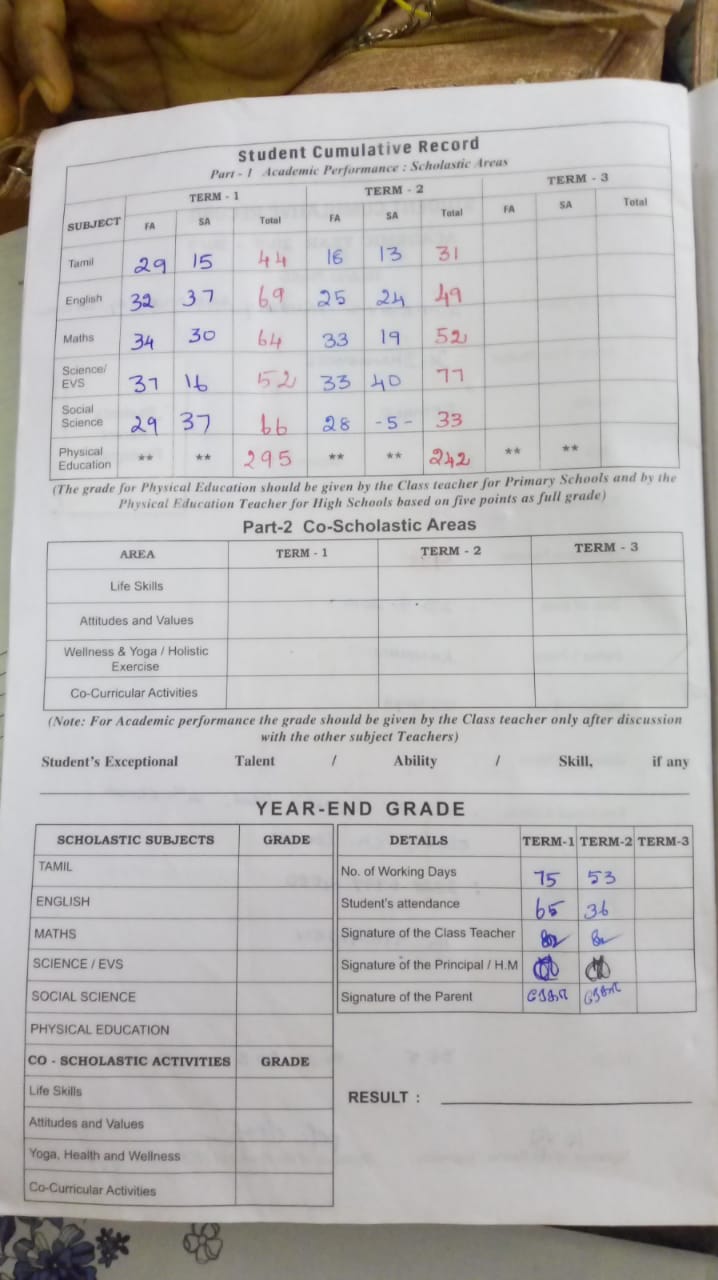 Student Cumulative Record
Part - 1 Academic Performance : Scholastic Areas
SUBJECT TERM - 1 TERM - 2 TERM - 3
FA SA Total FA SA Total FA SA Total
Tamil 29 15 44 18 13 31
English 32 37 69 25 24 49
Maths 34 30 64 33 19 52
Science/ EVS 37 16 52 33 40 77
Social Science 29 37 66 28 -5- 33
Physical Education ** ** 295 ** ** 242 ** **
(The grade for Physical Education should be given by the Class teacher for Primary Schools and by the
Physical Education Teacher for High Schools based on five points as full grade)
Part-2 Co-Scholastic Areas
AREA TERM - 1 TERM - 2 TERM - 3
Life Skills
Attitudes and Values
Wellness & Yoga / Holistic
Exercise
Co-Curricular Activities
(Note: For Academic performance the grade should be given by the Class teacher only after discussion
with the other subject Teachers)
Student's Exceptional Talent / Ability / Skill, if any
YEAR-END GRADE
SCHOLASTIC SUBJECTS GRADE
TAMIL
ENGLISH
MATHS
SCIENCE / EVS
SOCIAL SCIENCE
PHYSICAL EDUCATION
CO - SCHOLASTIC ACTIVITIES GRADE
Life Skills
Attitudes and Values
Yoga, Health and Wellness
Co-Curricular Activities
DETAILS TERM-1 TERM-2 TERM-3
No. of Working Days 75 53
Student's attendance 65 36
Signature of the Class Teacher
Signature of the Principal / H.M
Signature of the Parent
RESULT :